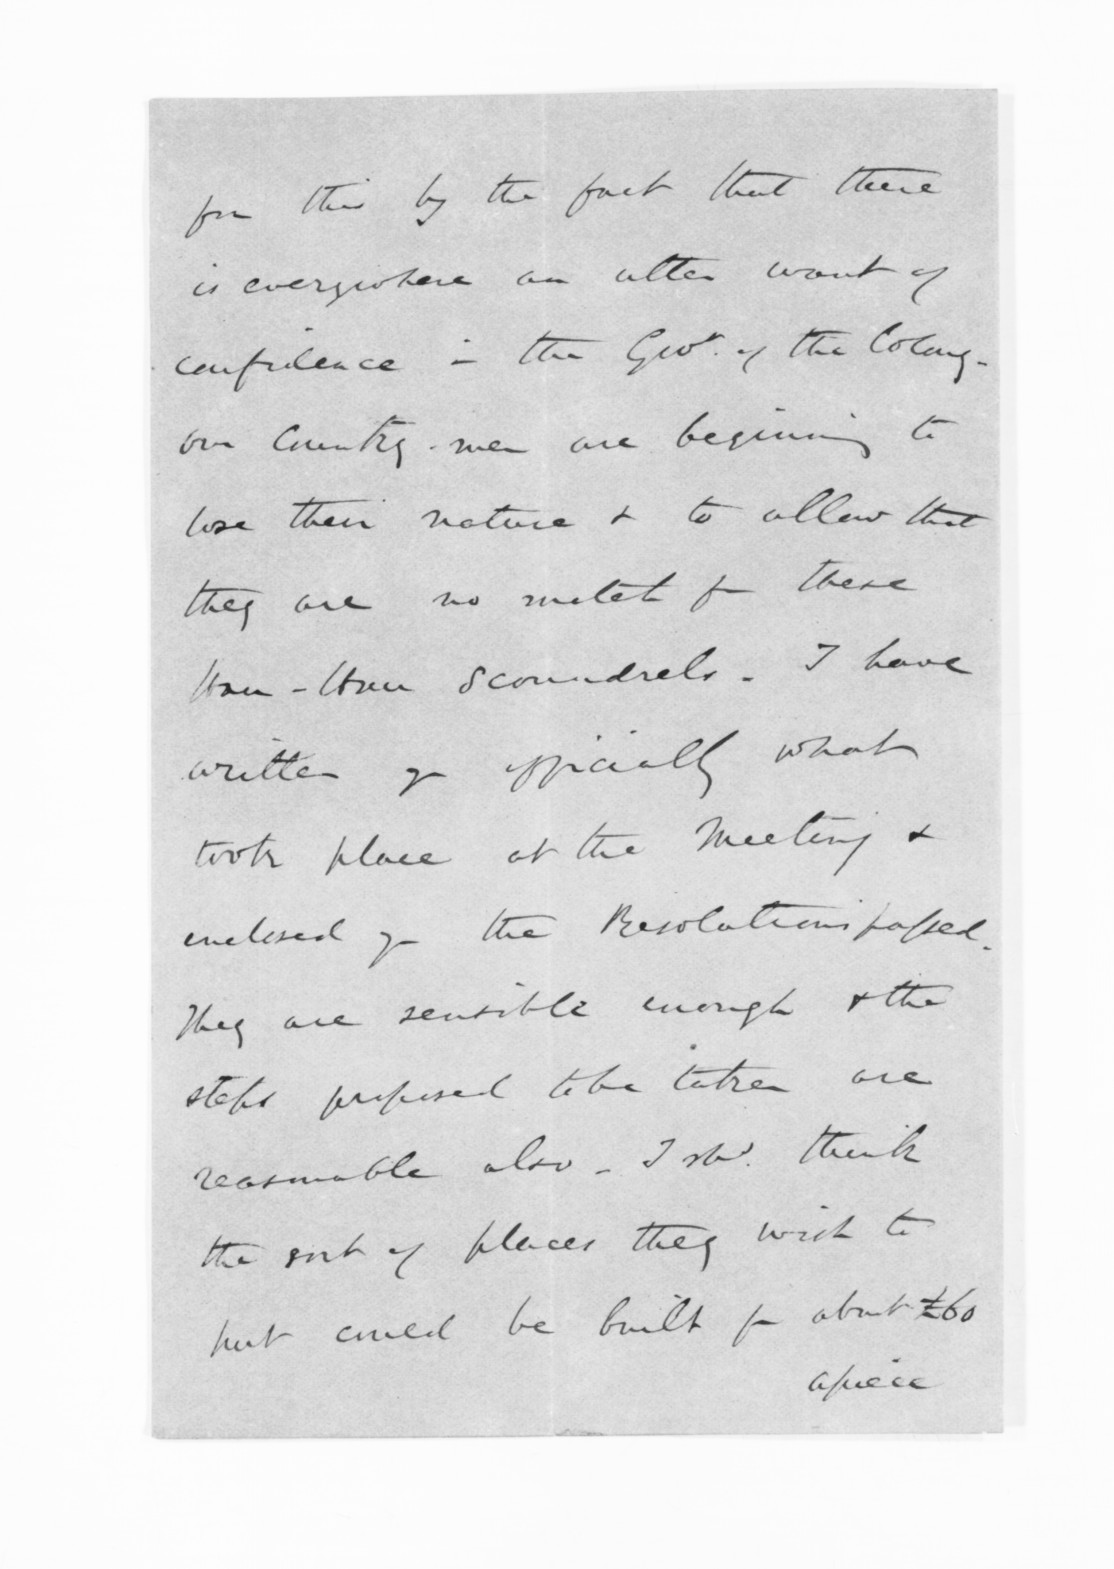 for this by the fact that there
is everywhere an utter want of
confidence in the Govt. of the Colony -
our Country-men are beginning to
lose their nature & to allow that
they are no match for these
Hau-Hau Scoundrels. I have
written you officially what
took place at the Meeting &
enclosed you the Resolutions passed.
They are sensible enough & the
steps proposed to be taken are
reasonable also - I shd. think
the sort of places they wish to
put could be built for about £60
apiece